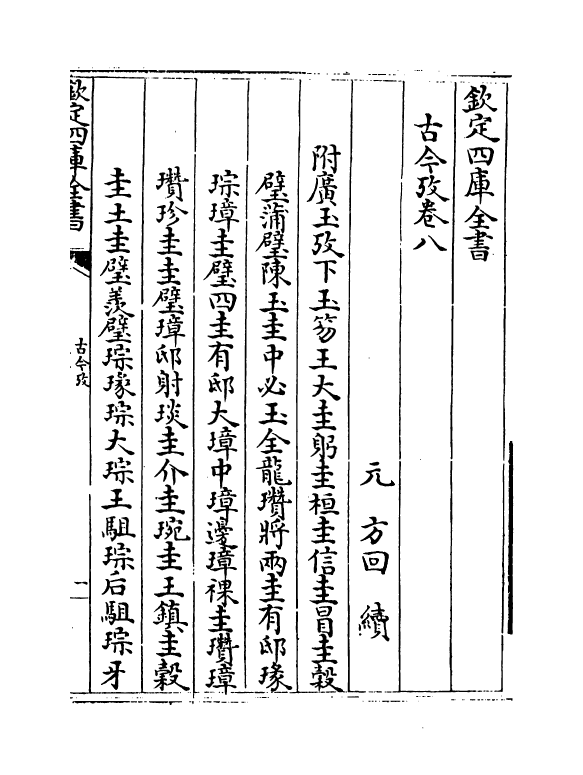 欽定四庫全書
古今攷卷八
元 方回 續
附廣玉攷下玉笏王大圭躬圭桓圭信圭冒圭穀
璧蒲璧陳玉圭中必玉全龍瓚將兩圭有邸瑑
琮璋圭璧四圭有邸大璋中璋邊璋祼圭瓚璋
瓚珍圭圭璧璋邸射琰圭介圭琬圭王鎮圭穀
圭土圭璧羨璧琮瑑琮大琮王駔琮后駔琮牙
欽定四庫全書
古今攷
一